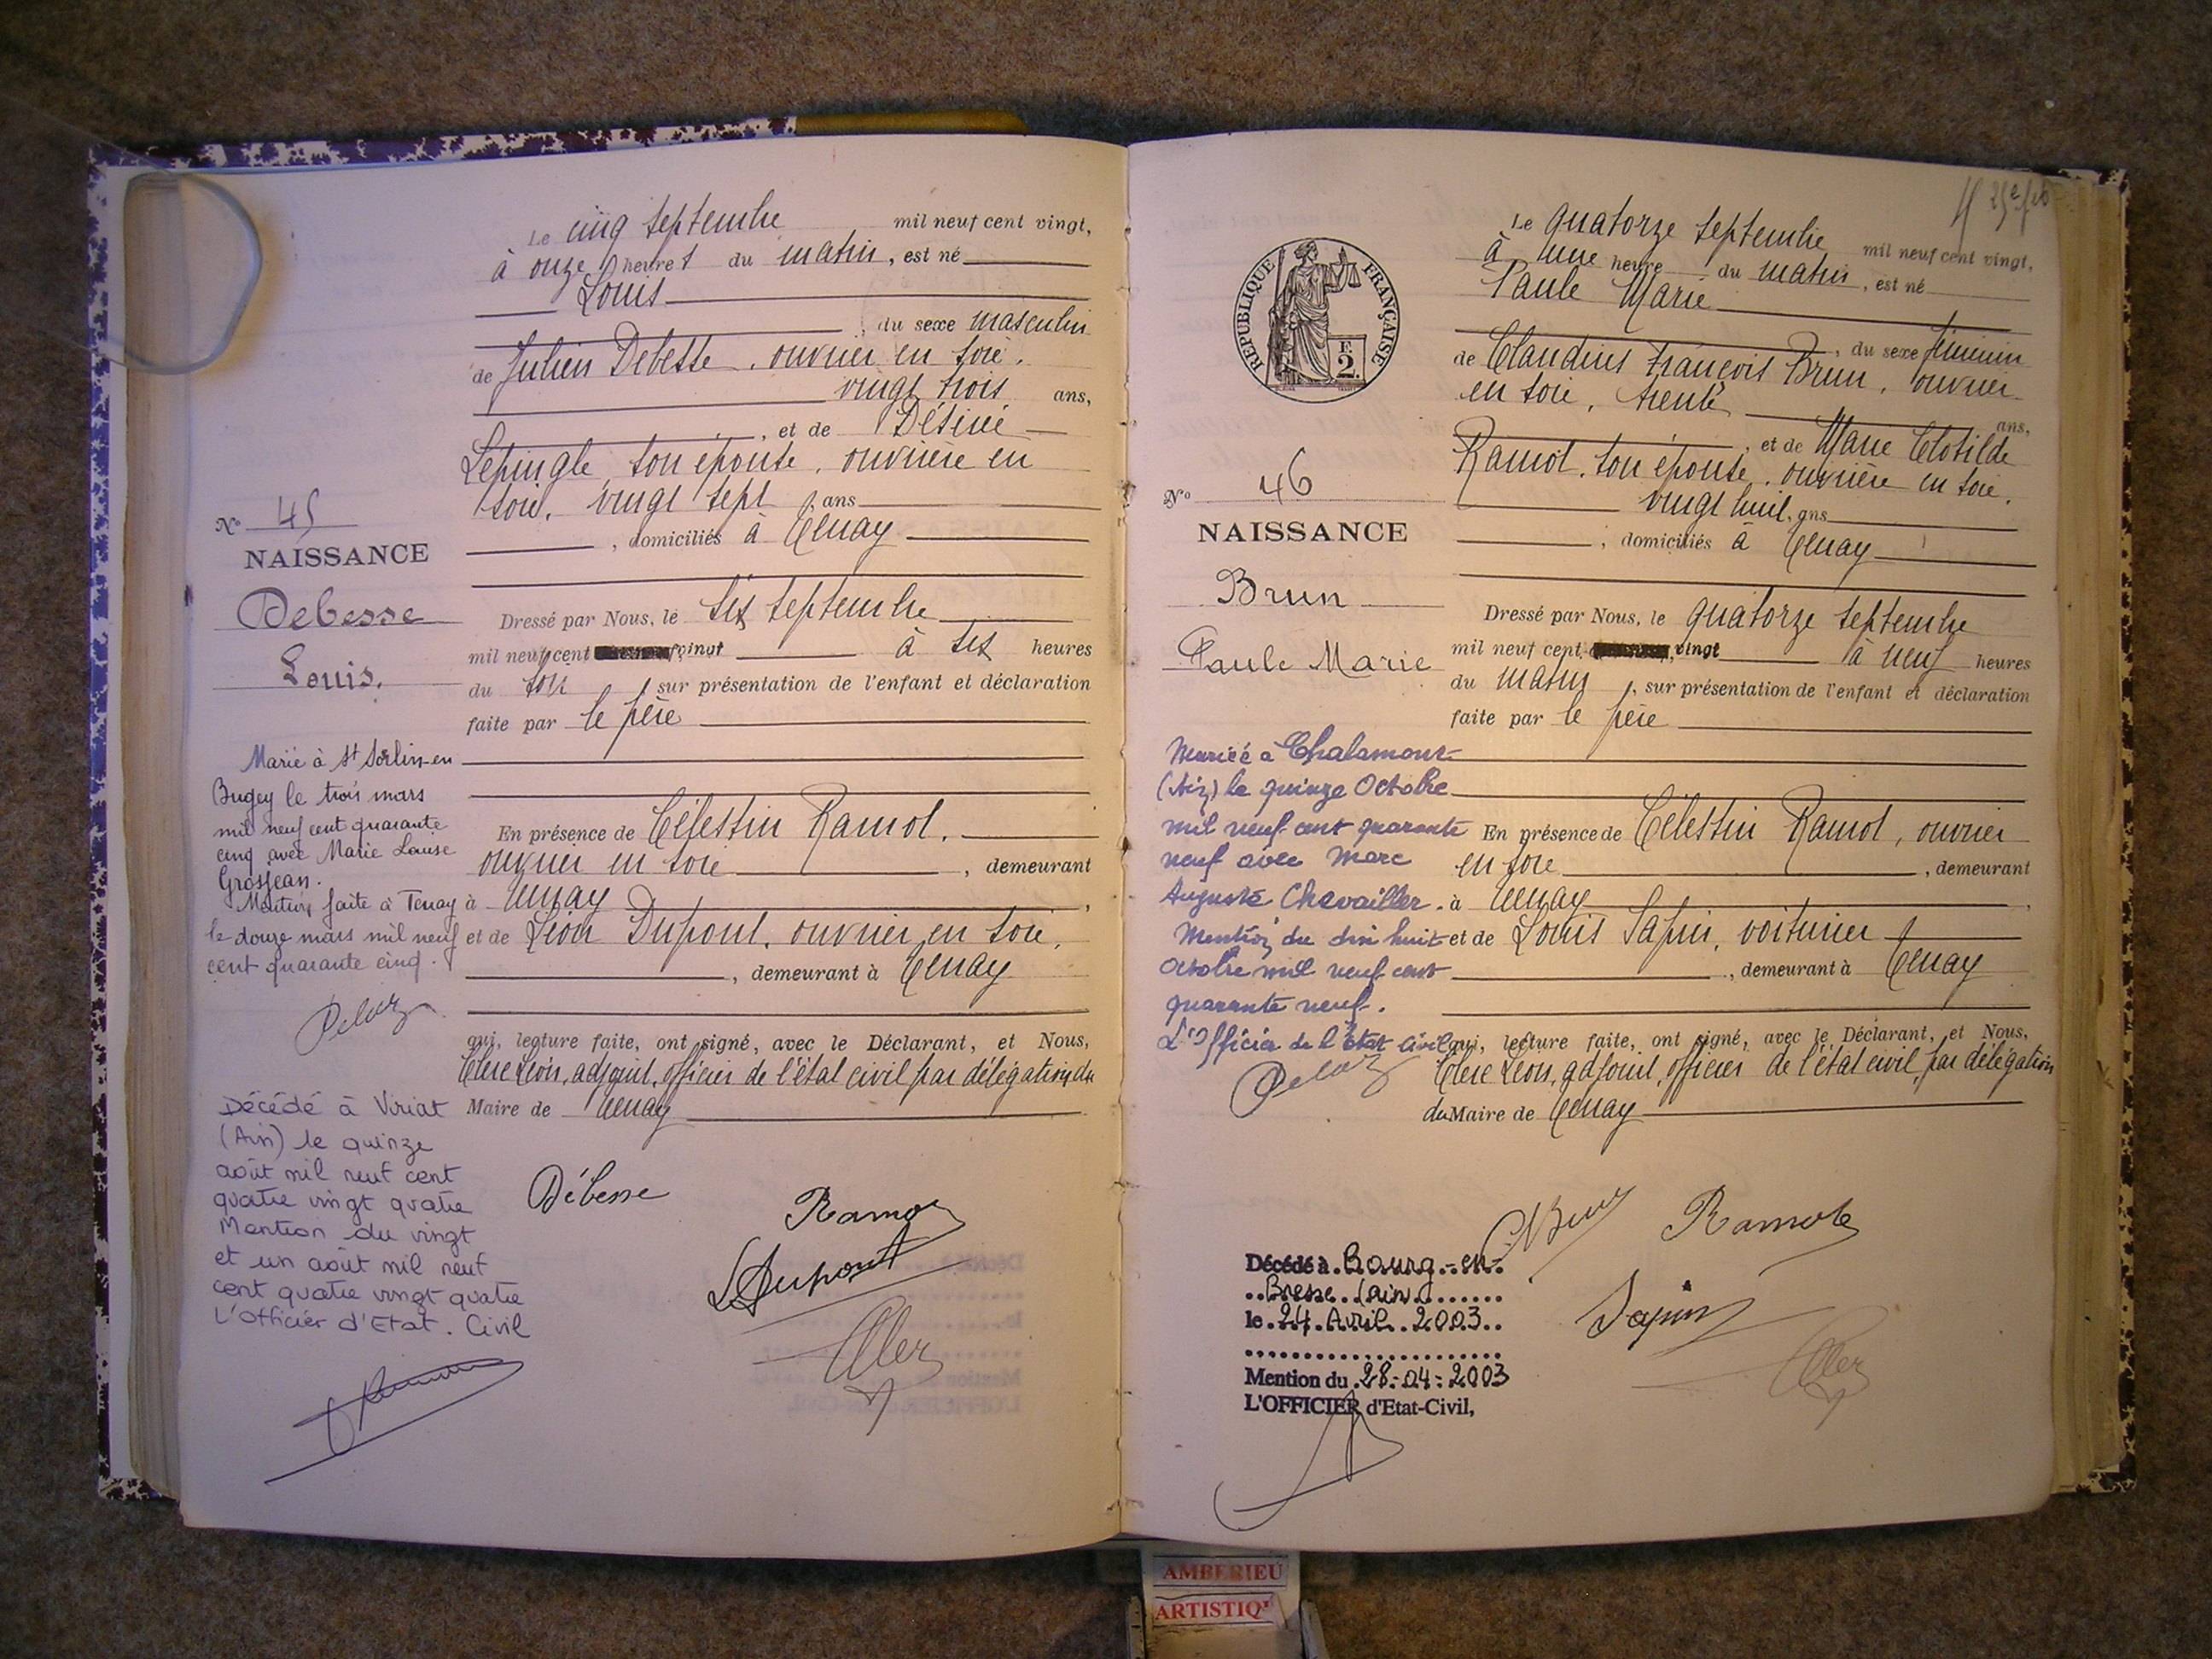 Le cinq septembre mil neuf cent vingt,
à onze heures du matin, est né
Louis
, du sexe masculin
de Julien Debesse, ouvrier en soie,
vingt trois ans,
, et de Désirée
Lepingle, son épouse, ouvrière en
soie, vingt sept ans
, domiciliés à Tenay
Dressé par Nous, le six septembre
mil neuf cent vingt à six heures
du soir, sur présentation de l'enfant et déclaration
faite par le père
En présence de Célestin Ramol,
ouvrier en soie, demeurant
à Tenay,
et de Léon Dupont, ouvrier en soie,
, demeurant à Tenay
qui, lecture faite, ont signé, avec le Déclarant, et Nous,
Clerc Léon, adjoint, officier de l'état civil par délégation du
Maire de Tenay
Nº 45
NAISSANCE
Debesse
Louis.
Marié à St Sorlin-en
Bugey le trois mars
mil neuf cent quarante
cinq avec Marie Louise
Grosjean.
Mention faite à Tenay
le douze mars mil neuf
cent quarante cinq.
Décédé à Viriat
(Ain) le quinze
août mil neuf cent
quatre vingt quatre
Mention du vingt
et un août mil neuf
cent quatre vingt quatre
L'officier d'Etat. Civil
Débesse
Ramol
LDupont
Clerc
Le quatorze septembre mil neuf cent vingt,
à une heure du matin, est né
Paule Marie
, du sexe féminin
de Claudius François Brun, ouvrier
en soie, trente ans,
, et de Marie Clotilde
Ramol, son épouse, ouvrière en soie,
vingt huit, ans
, domiciliés à Tenay
Dressé par Nous, le quatorze septembre
mil neuf cent vingt à neuf heures
du matin, sur présentation de l'enfant et déclaration
faite par le père
En présence de Célestin Ramol, ouvrier
en soie, demeurant
à Tenay
et de Louis Sapin, voiturier
, demeurant à Tenay
qui, lecture faite, ont signé, avec le Déclarant, et Nous,
Clerc Léon, adjoint, officier de l'état civil, par délégation
du Maire de Tenay
REPUBLIQUE FRANÇAISE
F.
2.
Nº 46
NAISSANCE
Brun
Paule Marie
Mariée à Chalamont
(Ain) le quinze Octobre
mil neuf cent quarante
neuf avec Marc
Auguste Chevailler.
Mention du dix huit
octobre mil neuf cent
quarante neuf.
L'Officier de l'Etat Civil
Brun
Ramol
Sapin
Clerc
Décédé à Bourg-en-
Bresse (ain)
le 24 Avril 2003
Mention du 28-04-2003
L'OFFICIER d'Etat-Civil,
AMBERIEU
ARTISTIQ'